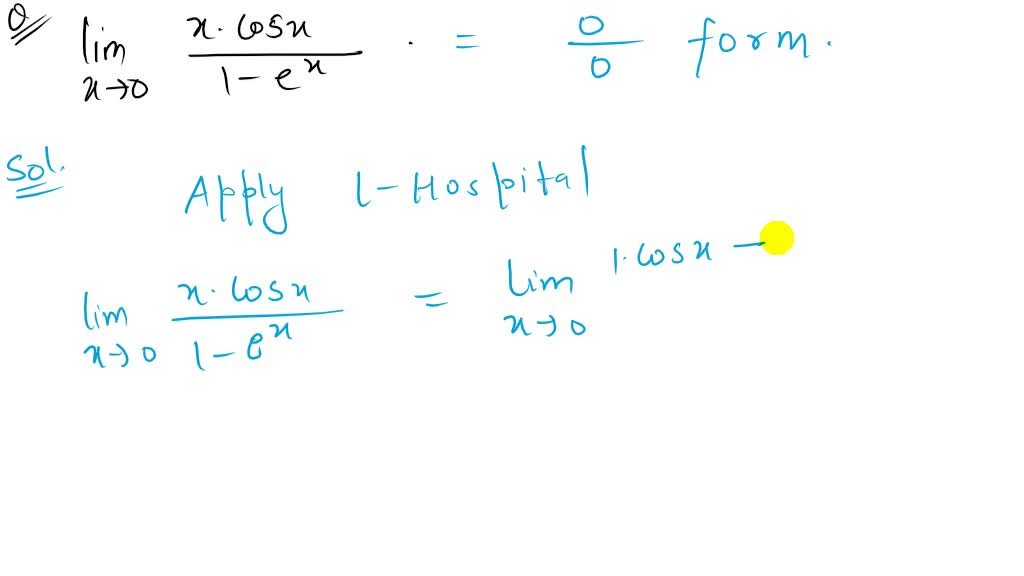 Q lim x→0 x·cosx / 1-e^x . = 0/0 form.
Sol.
Apply L-Hospital
lim x→0 x·cosx / 1-e^x = lim x→0 1·cosx -